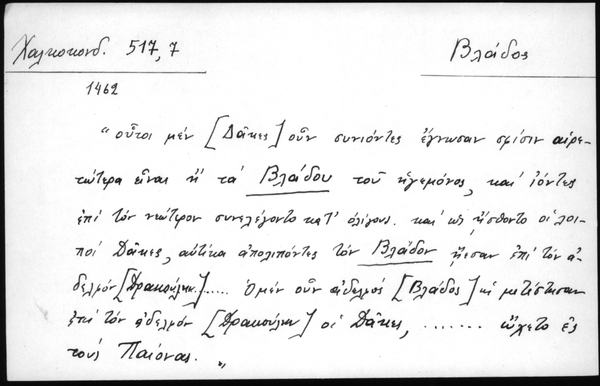 Χαλκοκονδ. 517,7
Βλάδος
1462
"οὗτοι μέν [Δᾶκες] οὖν συνιόντες ἔγνωσαν σφίσιν αἱρε-
τώτερα εἶναι ἤ τά Βλάδου τοῦ ἡγεμόνος, καί ἰόντες
ἐπί τόν νεώτερον συνελέγοντο κατ' ὀλίγους. καί ὡς ᾔσθοντο οἱ λοι-
ποί Δᾶκες, αὐτίκα ἀπολιπόντες τόν Βλάδον ᾔεσαν ἐπί τόν ἀ-
δελφόν [Δρακούλην]..... Ὁ μέν οὖν ἀδελφός [Βλάδος] ὡς μετέστησαν
ἐπί τόν ἀδελφόν [Δρακούλην] οἱ Δᾶκες, ....... ᾤχετο ἐς
τούς Παίονας."